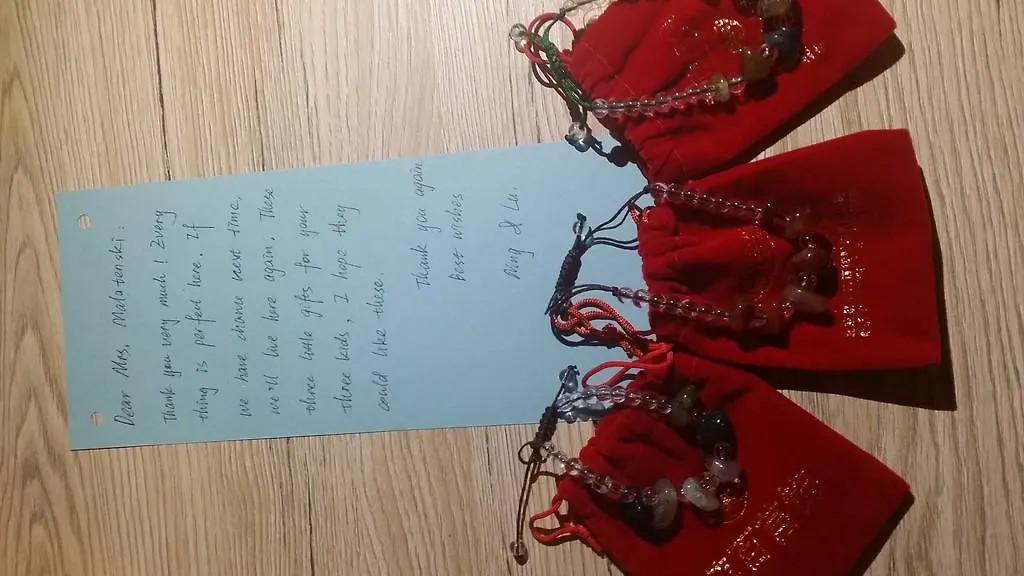 Dear Mrs. Malatienski:
Thank you very much! Every
thing is perfect here. If
we have chance next time,
we'll live here again. These
three little gifts for your
three kids. I hope they
could like these.
Thank you again
best wishes
Ning & Lu.